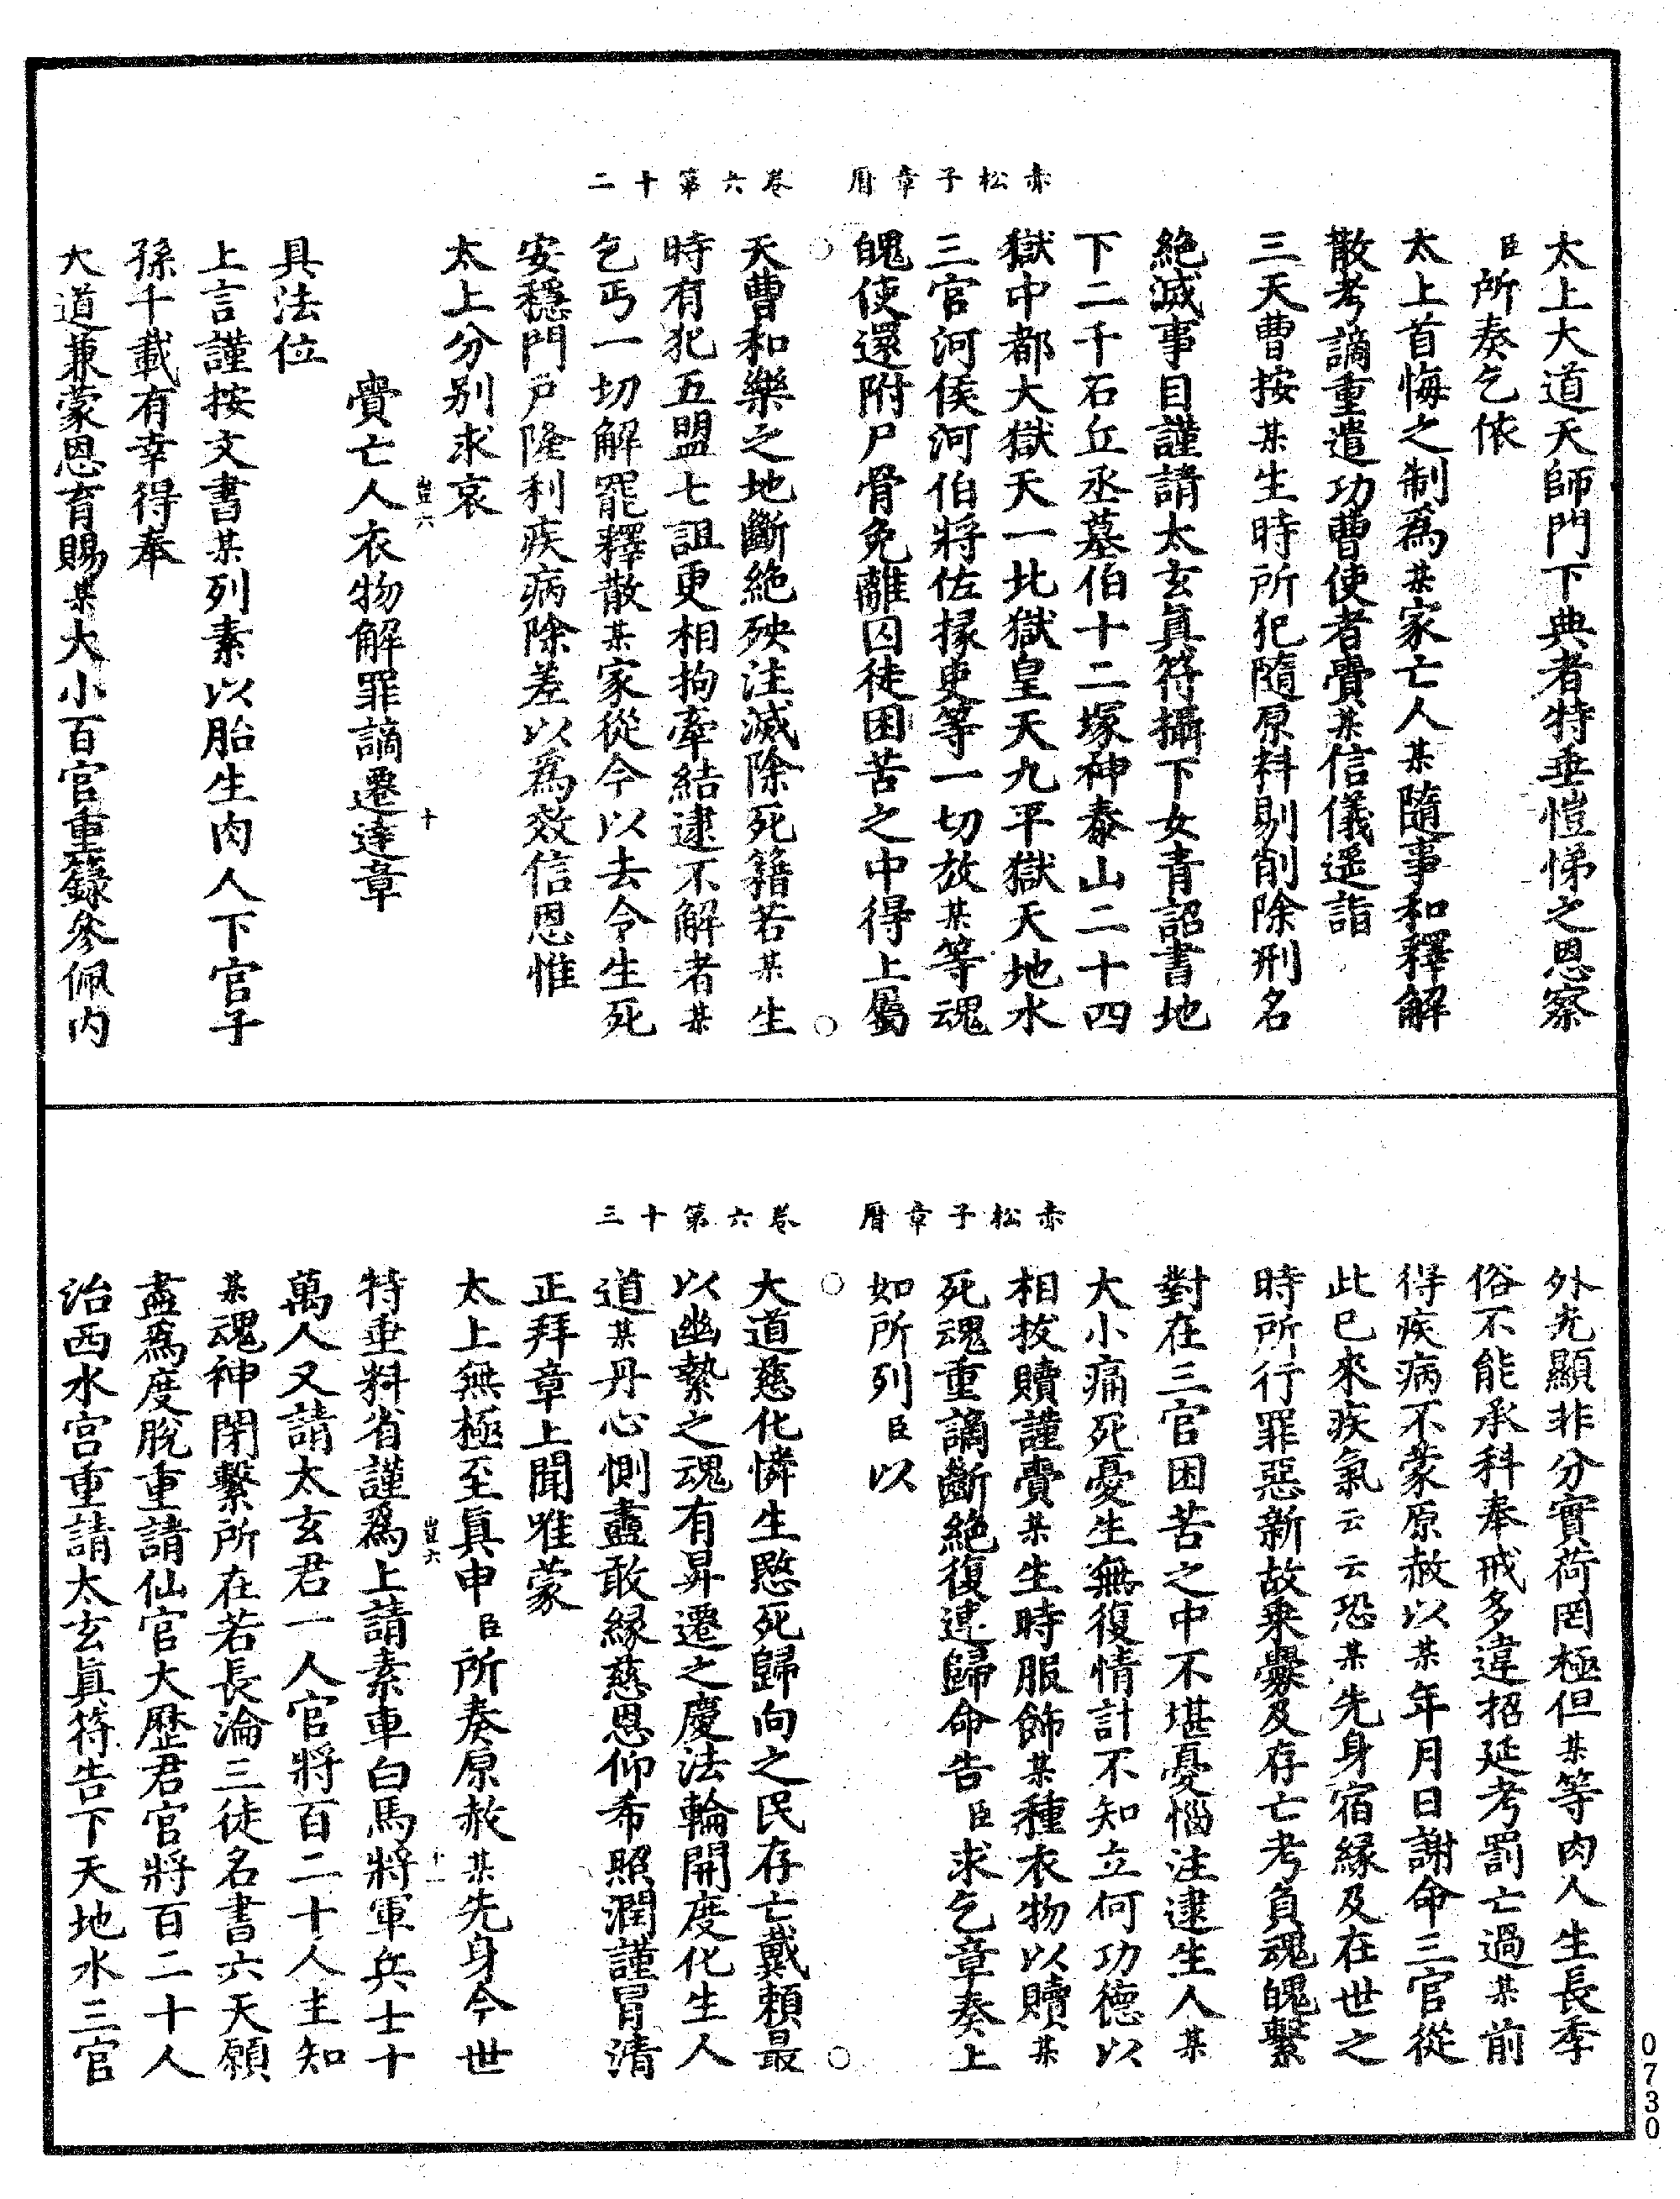 赤松子章曆　卷六第十二
太上大道天師門下典者特垂愷悌之恩察
臣所奏乞依
太上首悔之制為某家亡人某隨事和釋解
散考謫重遣功曹使者賫某信儀遥詣
三天曹按某生時所犯隨原料剔削除刑名
絶滅事目謹請太玄真符攝下女青詔書地
下二千石丘丞墓伯十二塚神泰山二十四
獄中都大獄天一北獄皇天九平獄天地水
三官河侯河伯將佐掾吏等一切放某等魂
魄使還附尸骨免離囚徒困苦之中得上屬
天曹和樂之地斷絶殃注滅除死籍若某生
時有犯五盟七詛更相拘牽結逮不解者某
乞丐一切解罷釋散某家從今以去令生死
安穩門户隆利疾病除差以為效信恩惟
太上分别求哀
豈六　十
賫亡人衣物解罪謫遷達章
具法位
上言謹按文書某列素以胎生肉人下官子
孫千載有幸得奉
大道兼蒙恩育賜某大小百官重籙參佩内
赤松子章曆　卷六第十三
外光顯非分實荷罔極但某等肉人生長季
俗不能承科奉戒多違招延考罰亡過某前
得疾病不蒙原赦以某年月日謝命三官從
此已來疾氣云云恐某先身宿緣及在世之
時所行罪惡新故乘釁及存亡考負魂魄繫
對在三官困苦之中不堪憂惱注逮生人某
大小痛死憂生無復情計不知立何功德以
相拔贖謹賫某生時服飾某種衣物以贖某
死魂重謫斷絶復連歸命告臣求乞章奏上
如所列臣以
大道慈化憐生愍死歸向之民存亡戴賴最
以幽縶之魂有昇遷之慶法輪開度化生人
道某丹心惻盡敢緣慈恩仰希照潤謹冒清
正拜章上聞唯蒙
太上無極至真申臣所奏原赦某先身今世
豈六　十一
特垂料省謹為上請素車白馬將軍兵士十
萬人又請太玄君一人官將百二十人主知
某魂神閉繫所在若長淪三徒名書六天願
盡為度脱重請仙官大歷君官將百二十人
治西水宫重請太玄真符告下天地水三官
0730